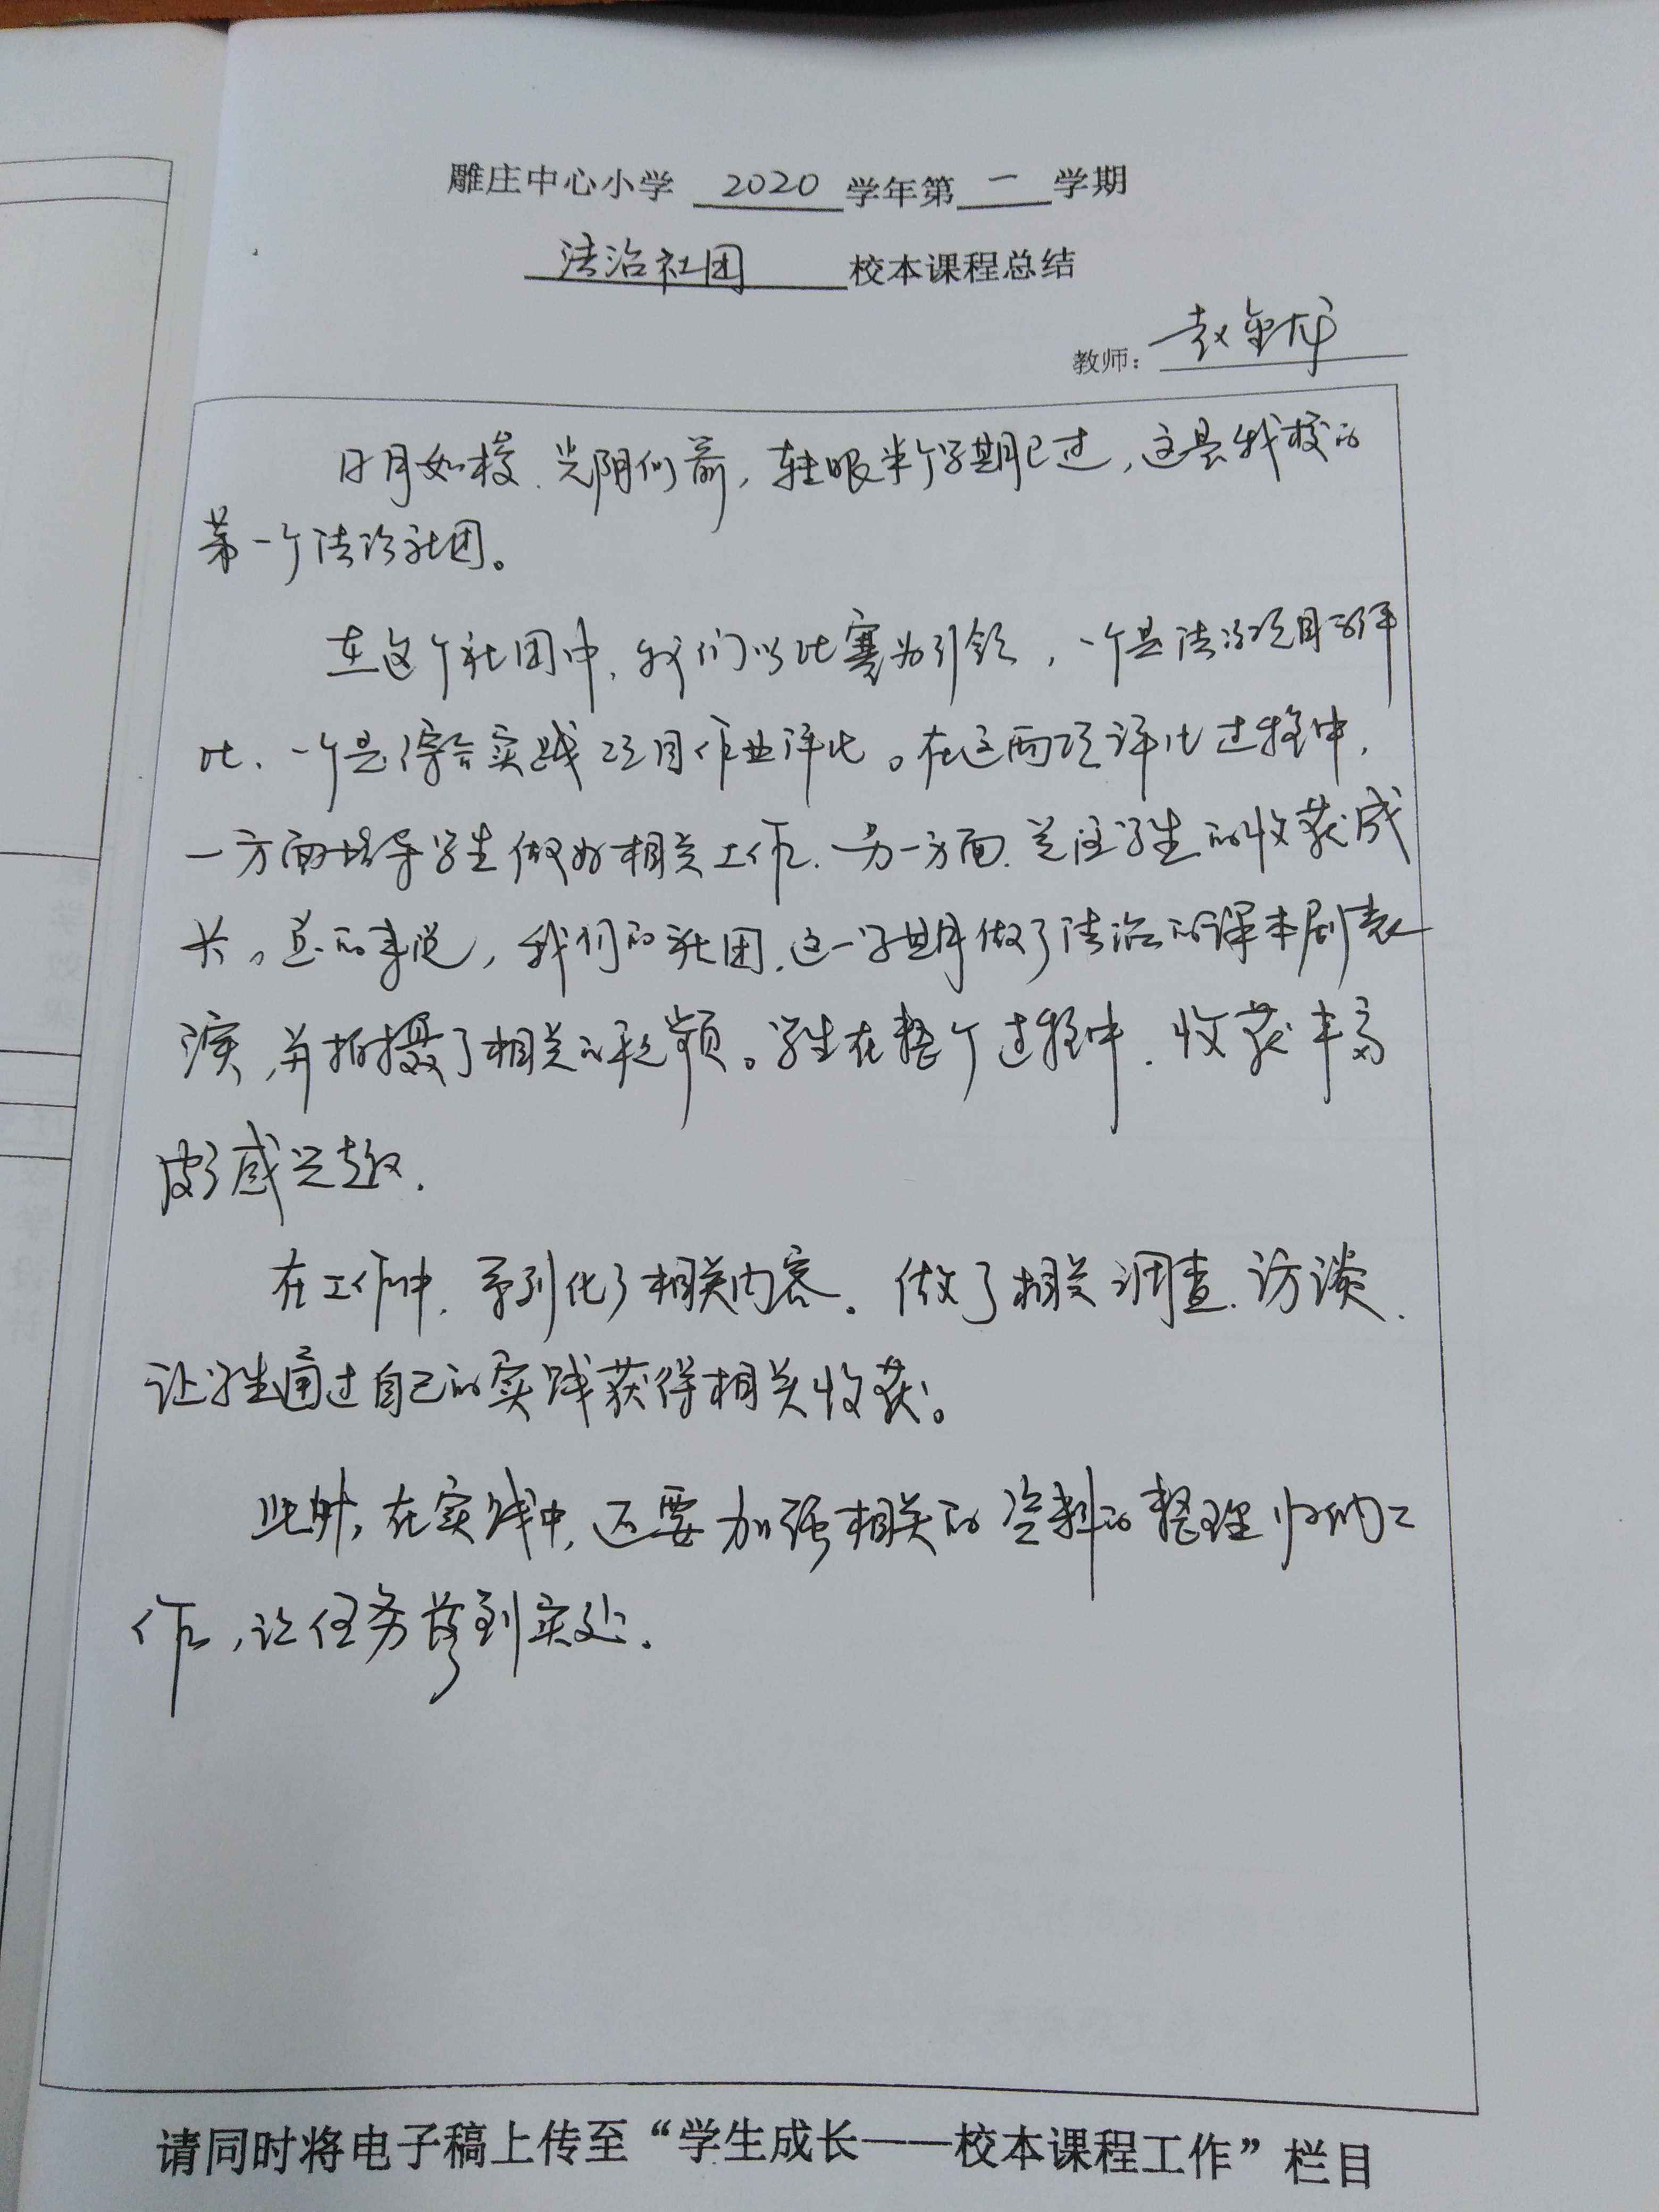 雕庄中心小学 2020 学年第 一 学期
法治社团 校本课程总结
教师： 赵金龙
日月如梭、光阴似箭，转眼半个学期已过，这是我校的
第一个法治社团。
在这个社团中，我们以比赛为引领，一个是法治项目的评
比、一个是综合实践项目作业评比。在这两项评比过程中，
一方面指导学生做好相关工作、另一方面、关注学生的收获成
长。总的来说，我们的社团，这一学期做了法治的课本剧表
演，并拍摄了相关的视频。学生在整个过程中、收获丰富
感兴趣.
在工作中，系列化了相关内容。做了相关调查、访谈、
让学生通过自己的实践获得相关收获。
此外，在实践中，还要加强相关的资料的整理归纳工
作，让任务落到实处.
请同时将电子稿上传至“学生成长——校本课程工作”栏目